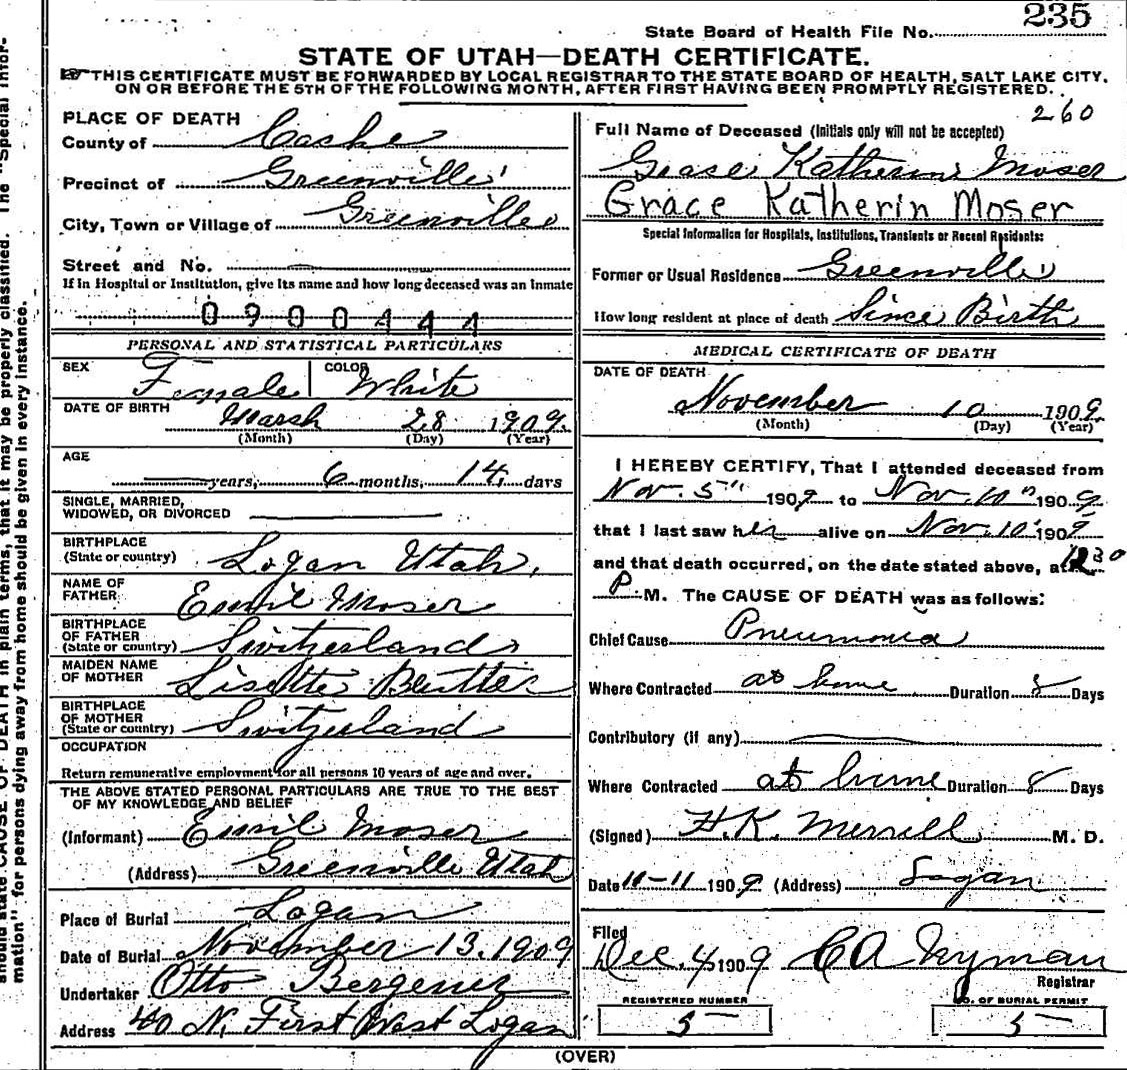 235
State Board of Health File No.
STATE OF UTAH—DEATH CERTIFICATE.
THIS CERTIFICATE MUST BE FORWARDED BY LOCAL REGISTRAR TO THE STATE BOARD OF HEALTH, SALT LAKE CITY,
ON OR BEFORE THE 5TH OF THE FOLLOWING MONTH, AFTER FIRST HAVING BEEN PROMPTLY REGISTERED.
PLACE OF DEATH
County of Cache
Precinct of Greenville
City, Town or Village of Greenville
Street and No.
If in Hospital or Institution, give its name and how long deceased was an inmate
0900444
PERSONAL AND STATISTICAL PARTICULARS
SEX Female COLOR White
DATE OF BIRTH Marsh 28 1909
(Month) (Day) (Year)
AGE
years, 6 months, 14 days
SINGLE, MARRIED,
WIDOWED, OR DIVORCED
BIRTHPLACE
(State or country) Logan Utah,
NAME OF
FATHER Emil Moser
BIRTHPLACE
OF FATHER
(State or country) Switzerland
MAIDEN NAME
OF MOTHER Lisette
BIRTHPLACE
OF MOTHER
(State or country) Switzerland
OCCUPATION
Return remunerative employment for all persons 10 years of age and over.
THE ABOVE STATED PERSONAL PARTICULARS ARE TRUE TO THE BEST
OF MY KNOWLEDGE AND BELIEF
(Informant) Emil Moser
(Address) Greenville Utah
Place of Burial Logan
Date of Burial November 13. 1909
Undertaker Otto
Address 40 N. First West Logan
260
Full Name of Deceased (Initials only will not be accepted)
Grace Katherin Moser
Grace Katherin Moser
Special Information for Hospitals, Institutions, Transients or Recent Residents:
Former or Usual Residence Greenville
How long resident at place of death Since Birth
MEDICAL CERTIFICATE OF DEATH
DATE OF DEATH
November 10 1909
(Month) (Day) (Year)
I HEREBY CERTIFY, That I attended deceased from
Nov. 5" 1909 to Nov. 10" 1909
that I last saw her alive on Nov. 10' 1909
and that death occurred, on the date stated above, at 1230
P M. The CAUSE OF DEATH was as follows:
Chief Cause Pneumonia
Where Contracted at home Duration 8 Days
Contributory (if any)
Where Contracted at home Duration 8 Days
(Signed) H. K. Merrill M. D.
Date 11-11 1909 (Address) Logan
Filed
Dec. 4 1909 C A Nyman
Registrar
REGISTERED NUMBER
5
NO. OF BURIAL PERMIT
5
(OVER)